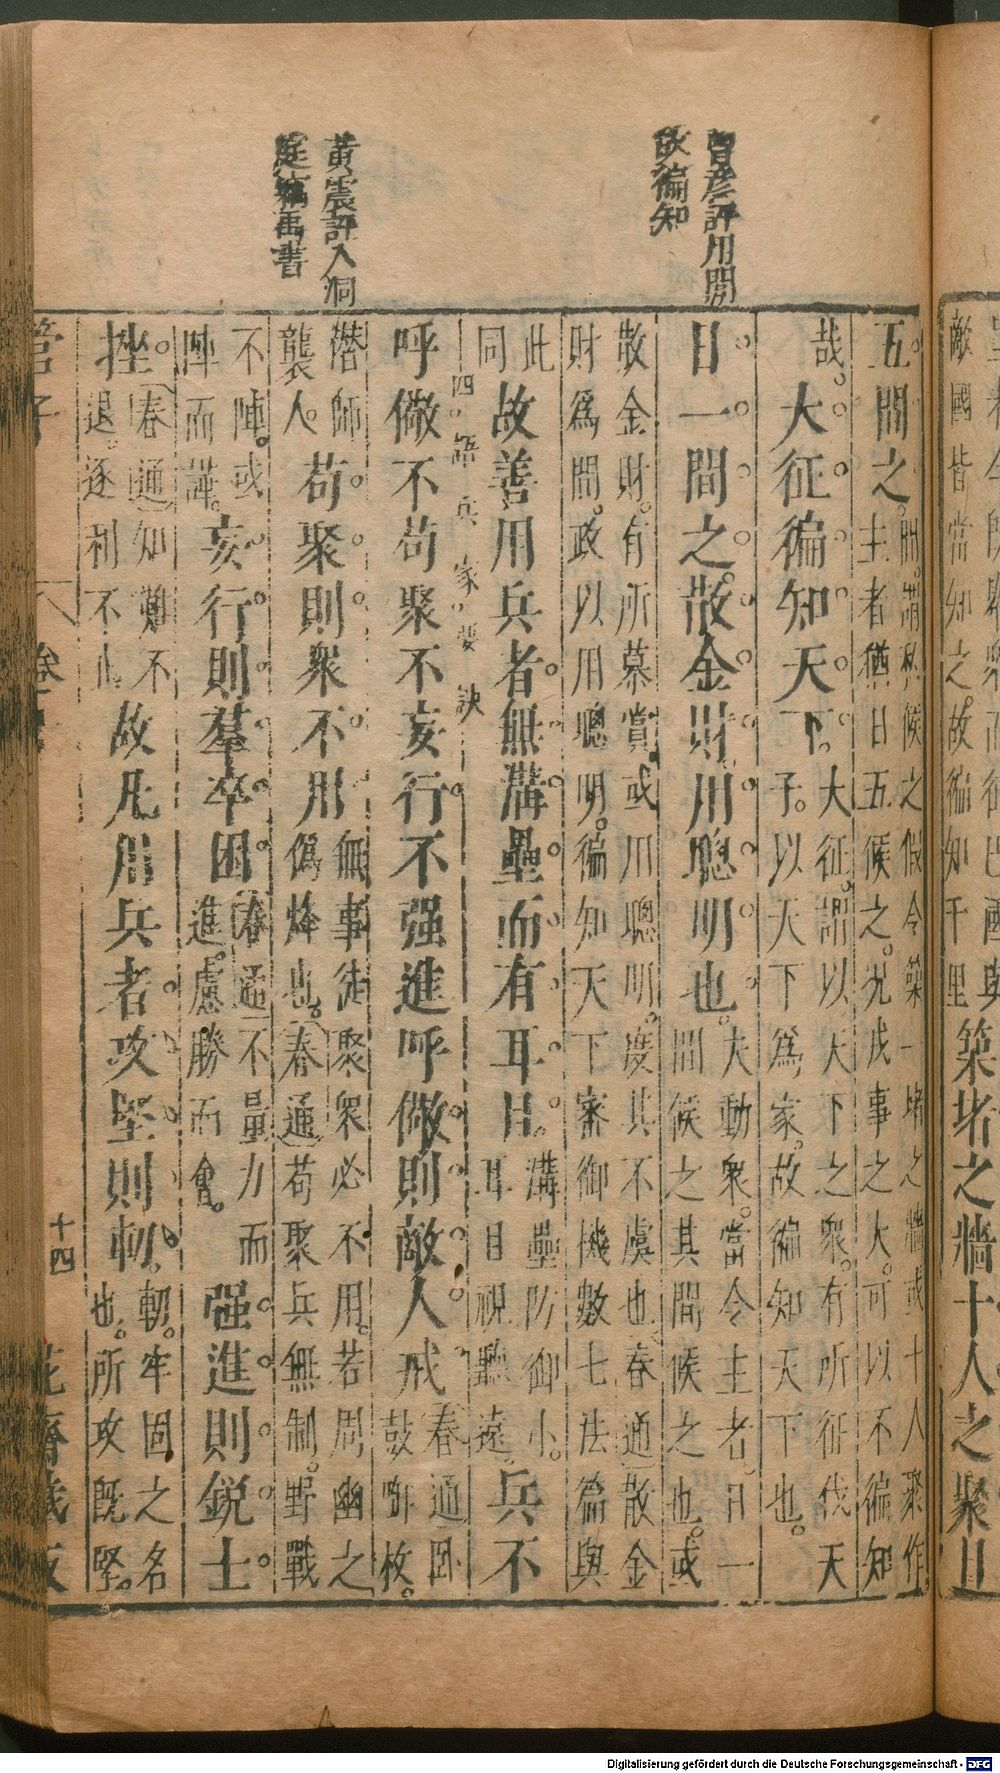 敵國皆當知之故徧知千里
築堵之牆十人之聚日
曾彥評用間
故徧知
黃震評入洞
庭窺禹書
五間之
間謂私候之假令築一堵之牆或十人聚作
主者猶日五候之况戎事之大可以不徧知
哉大征徧知天下
大征謂以天下之衆有所征伐天
子以天下爲家故徧知天下也
日一間之散金財用聰明也
大動衆當令主者日一
間候之其間候之也或
散金財有所募賞或用聰明度其不虞也春通散金
財爲間政以用聰明徧知天下審御機數七法篇與
此
同
故善用兵者無溝壘而有耳目
溝壘防御小
耳目視聽遠
兵不
四語兵家要訣
呼儆不苟聚不妄行不强進呼儆則敵人戒
春通臥
鼓啣枚
潛師
襲人
苟聚則衆不用
無事徒聚衆必不用若周幽之
僞烽也春通苟聚兵無制野戰
不陣或
陣而譁
妄行則羣卒困
春通不量力而
進慮勝而會
强進則銳士
挫
春通知難不
退逐利不止
故凡用兵者攻堅則軔
軔牢固之名
也所攻旣堅
管子
十四
花齋藏板
Digitalisierung gefördert durch die Deutsche Forschungsgemeinschaft - DFG